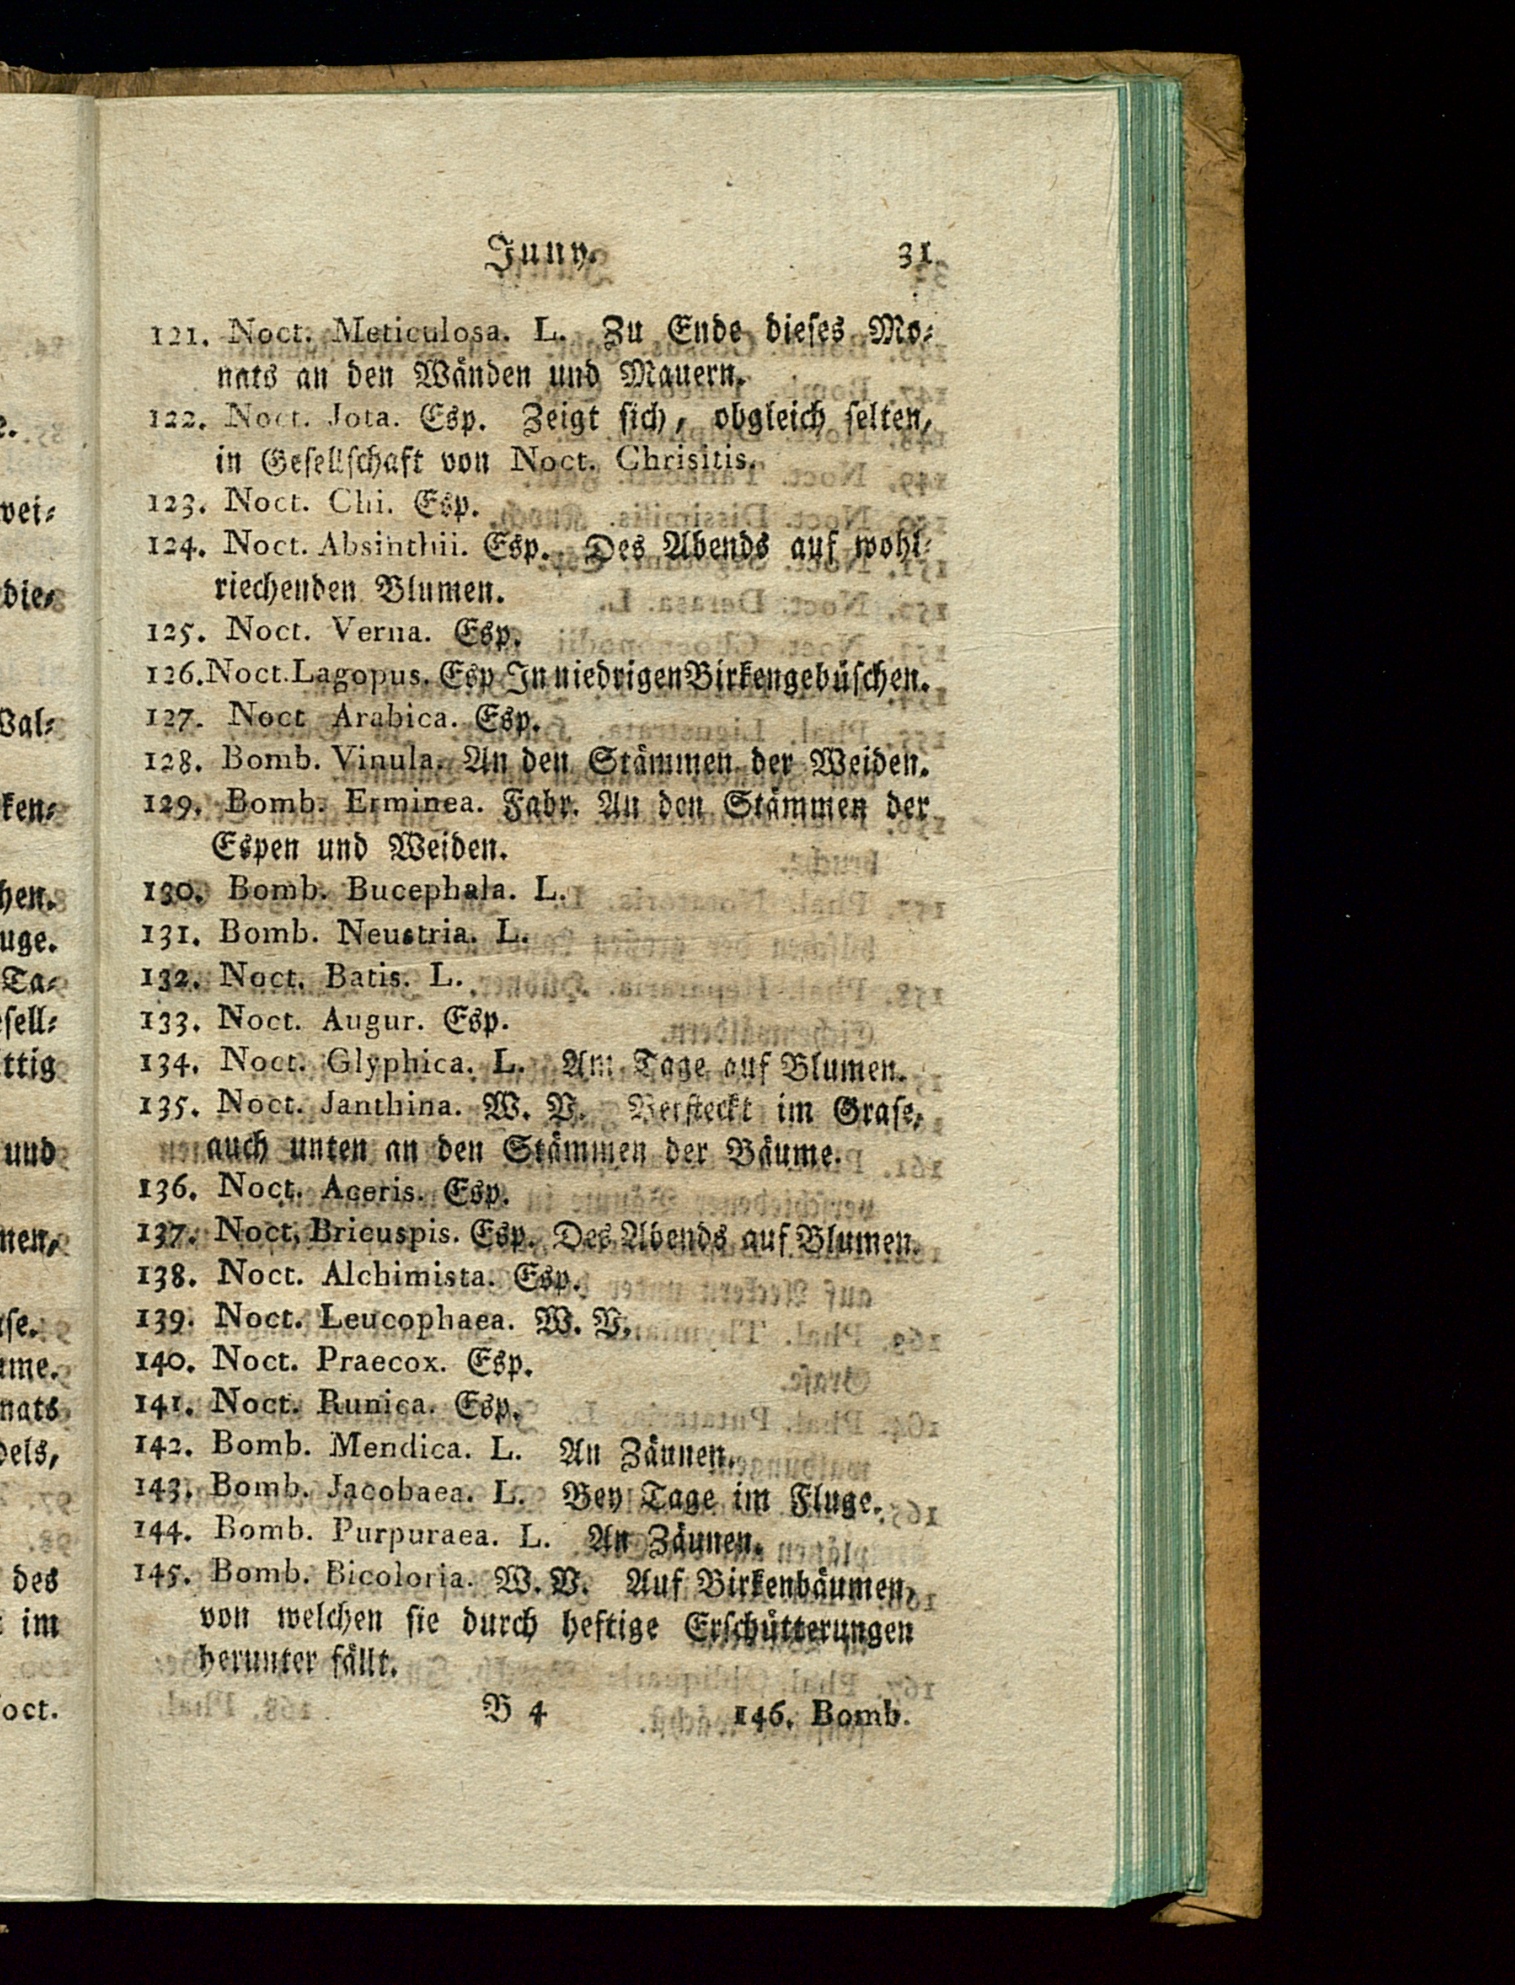 Juny. 31
121. Noct. Meticulosa. L. Zu Ende dieses Mo-
nats an den Wänden und Mauern.
122. Noct. Jota. Esp. Zeigt sich, obgleich selten,
in Gesellschaft von Noct. Chrisitis.
123. Noct. Chi. Esp.
124. Noct. Absinthii. Esp. Des Abends auf wohl-
riechenden Blumen.
125. Noct. Verna. Esp.
126. Noct. Lagopus. Esp In niedrigen Birkengebüschen.
127. Noct Arabica. Esp.
128. Bomb. Vinula. An den Stämmen der Weiden.
129. Bomb. Erminea. Fabr. An den Stämmen der
Espen und Weiden.
130. Bomb. Bucephala. L.
131. Bomb. Neustria. L.
132. Noct. Batis. L.
133. Noct. Augur. Esp.
134. Noct. Glyphica. L. Am Tage auf Blumen.
135. Noct. Janthina. W. V. Versteckt im Grase,
auch unten an den Stämmen der Bäume.
136. Noct. Aceris. Esp.
137. Noct, Bricuspis. Esp. Des Abends auf Blumen.
138. Noct. Alchimista. Esp.
139. Noct. Leucophaea. W. V.
140. Noct. Praecox. Esp.
141. Noct. Runica. Esp.
142. Bomb. Mendica. L. An Zäunen.
143. Bomb. Jacobaea. L. Bey Tage im Fluge.
144. Bomb. Purpuraea. L. An Zäunen.
145. Bomb. Bicoloria. W. V. Auf Birkenbäumen,
von welchen sie durch heftige Erschütterungen
herunter fällt.
B 4 146. Bomb.